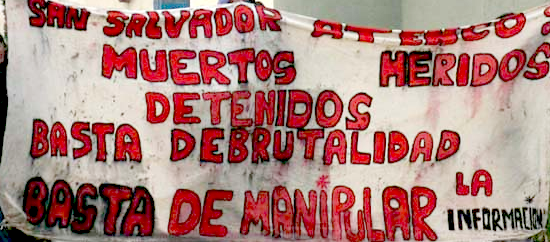 SAN SALVADOR ATENCO
MUERTOS HERIDOS
DETENIDOS
BASTA DEBRUTALIDAD
BASTA DE MANIPULAR LA INFORMACION